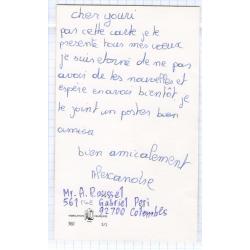 cher youri
pas cette carte je te
presente tous mes voeux
je suis etoné de ne pas
avoir de tes nouvelles et
espère en avoir bientôt je
te joint un postes bien
amica
bien amicalement
Alexandre
Mr. A. Roussel
561 rue Gabriel Peri
92700 Colombes